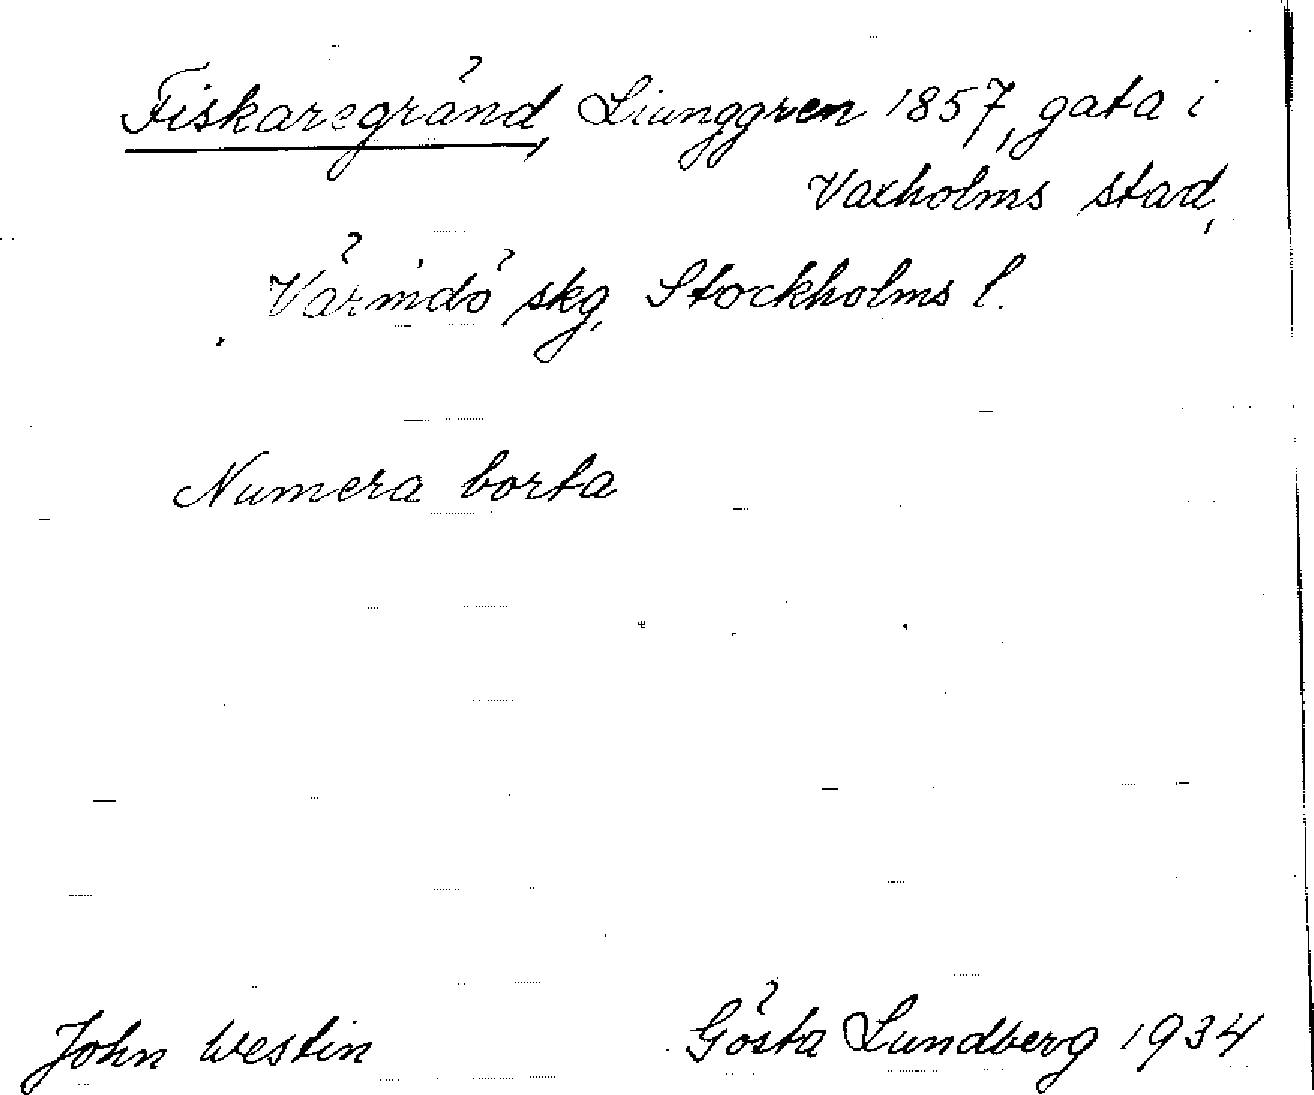 Fiskaregränd, Ljunggren 1857, gata i
Vaxholms stad,
Värmdö skg, Stockholms l.
Numera borta
John Westin
Gösta Lundberg 1934